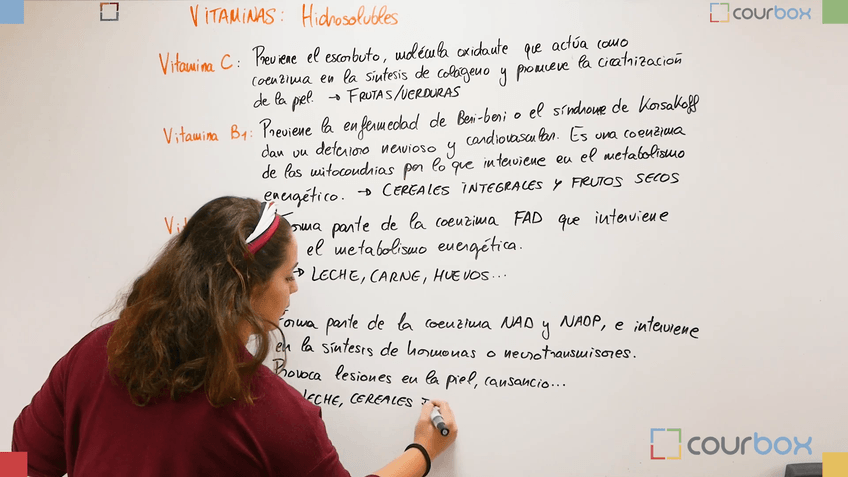 VITAMINAS: Hidrosolubles
courbox
Vitamina C: Previene el escorbuto, molécula oxidante que actúa como
coenzima en la síntesis de colágeno y promueve la cicatrización
de la piel. → FRUTAS/VERDURAS
Vitamina B1: Previene la enfermedad de Beri-beri o el síndrome de Korsakoff
dan un deterioro nervioso y cardiovascular. Es una coenzima
de las mitocondrias por lo que interviene en el metabolismo
energético. → CEREALES INTEGRALES Y FRUTOS SECOS
Vit
forma parte de la coenzima FAD que interviene
el metabolismo energética.
→ LECHE, CARNE, HUEVOS...
forma parte de la coenzima NAD y NADP, e interviene
en la síntesis de hormonas o neurotransmisores.
Provoca lesiones en la piel, cansancio...
LECHE, CEREALES
courbox